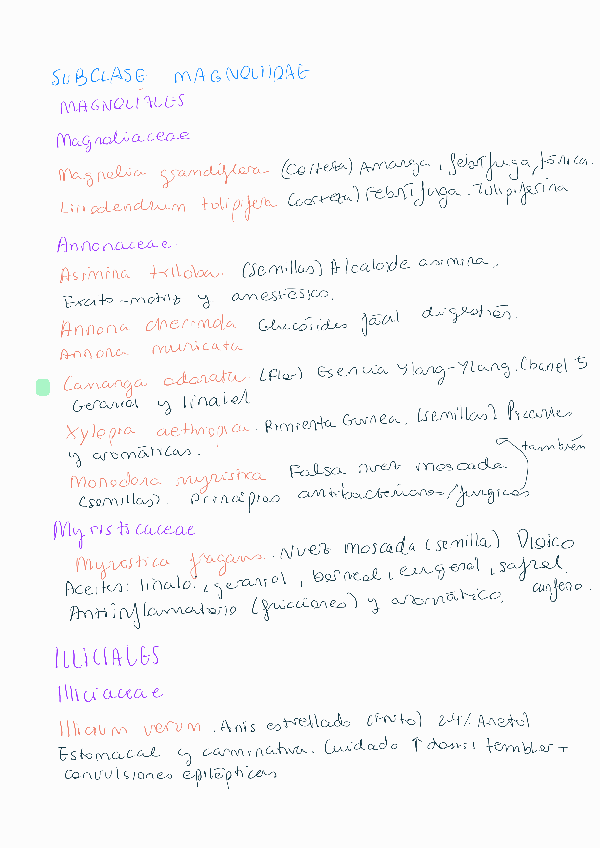 SUBCLASE MAGNOLIIDAE
MAGNOLIALES
Magnoliaceae
Magnolia grandiflora (Corteza) Amarga, febrífuga, tónica.
Liriodendrum tulipifera (corteza) Febrífuga. Tulipiferina
Annonaceae
Asimina triloba. (Semillas) Alcaloide asimina.
Excito-motriz y anestésico.
Annona cherimola Glucósidos fácil digestión.
Annona muricata
Cananga odorata (Flor) Esencia Ylang-Ylang. Chanel 5
Geraniol y linalol
Xylopia aethiopica. Pimienta Guinea. (semillas) Picantes
y aromáticas.
también
Monodora myristica Falsa nuez moscada
(semillas). Principios antibacterianos/fúngicos
Myristicaceae
Myristica fragans. Nuez moscada (semilla) Dioico
Aceites: linalol, geraniol, borneol, eugenol, safrol,
Antiinflamatorio (fricciones) y aromático. canfeno.
ILLICIALES
Illiciaceae
Illicium verum. Anís estrellado (fruto) Anetol
Estomacal y carminativa. Cuidado ↑ dosis: temblor +
convulsiones epilépticas